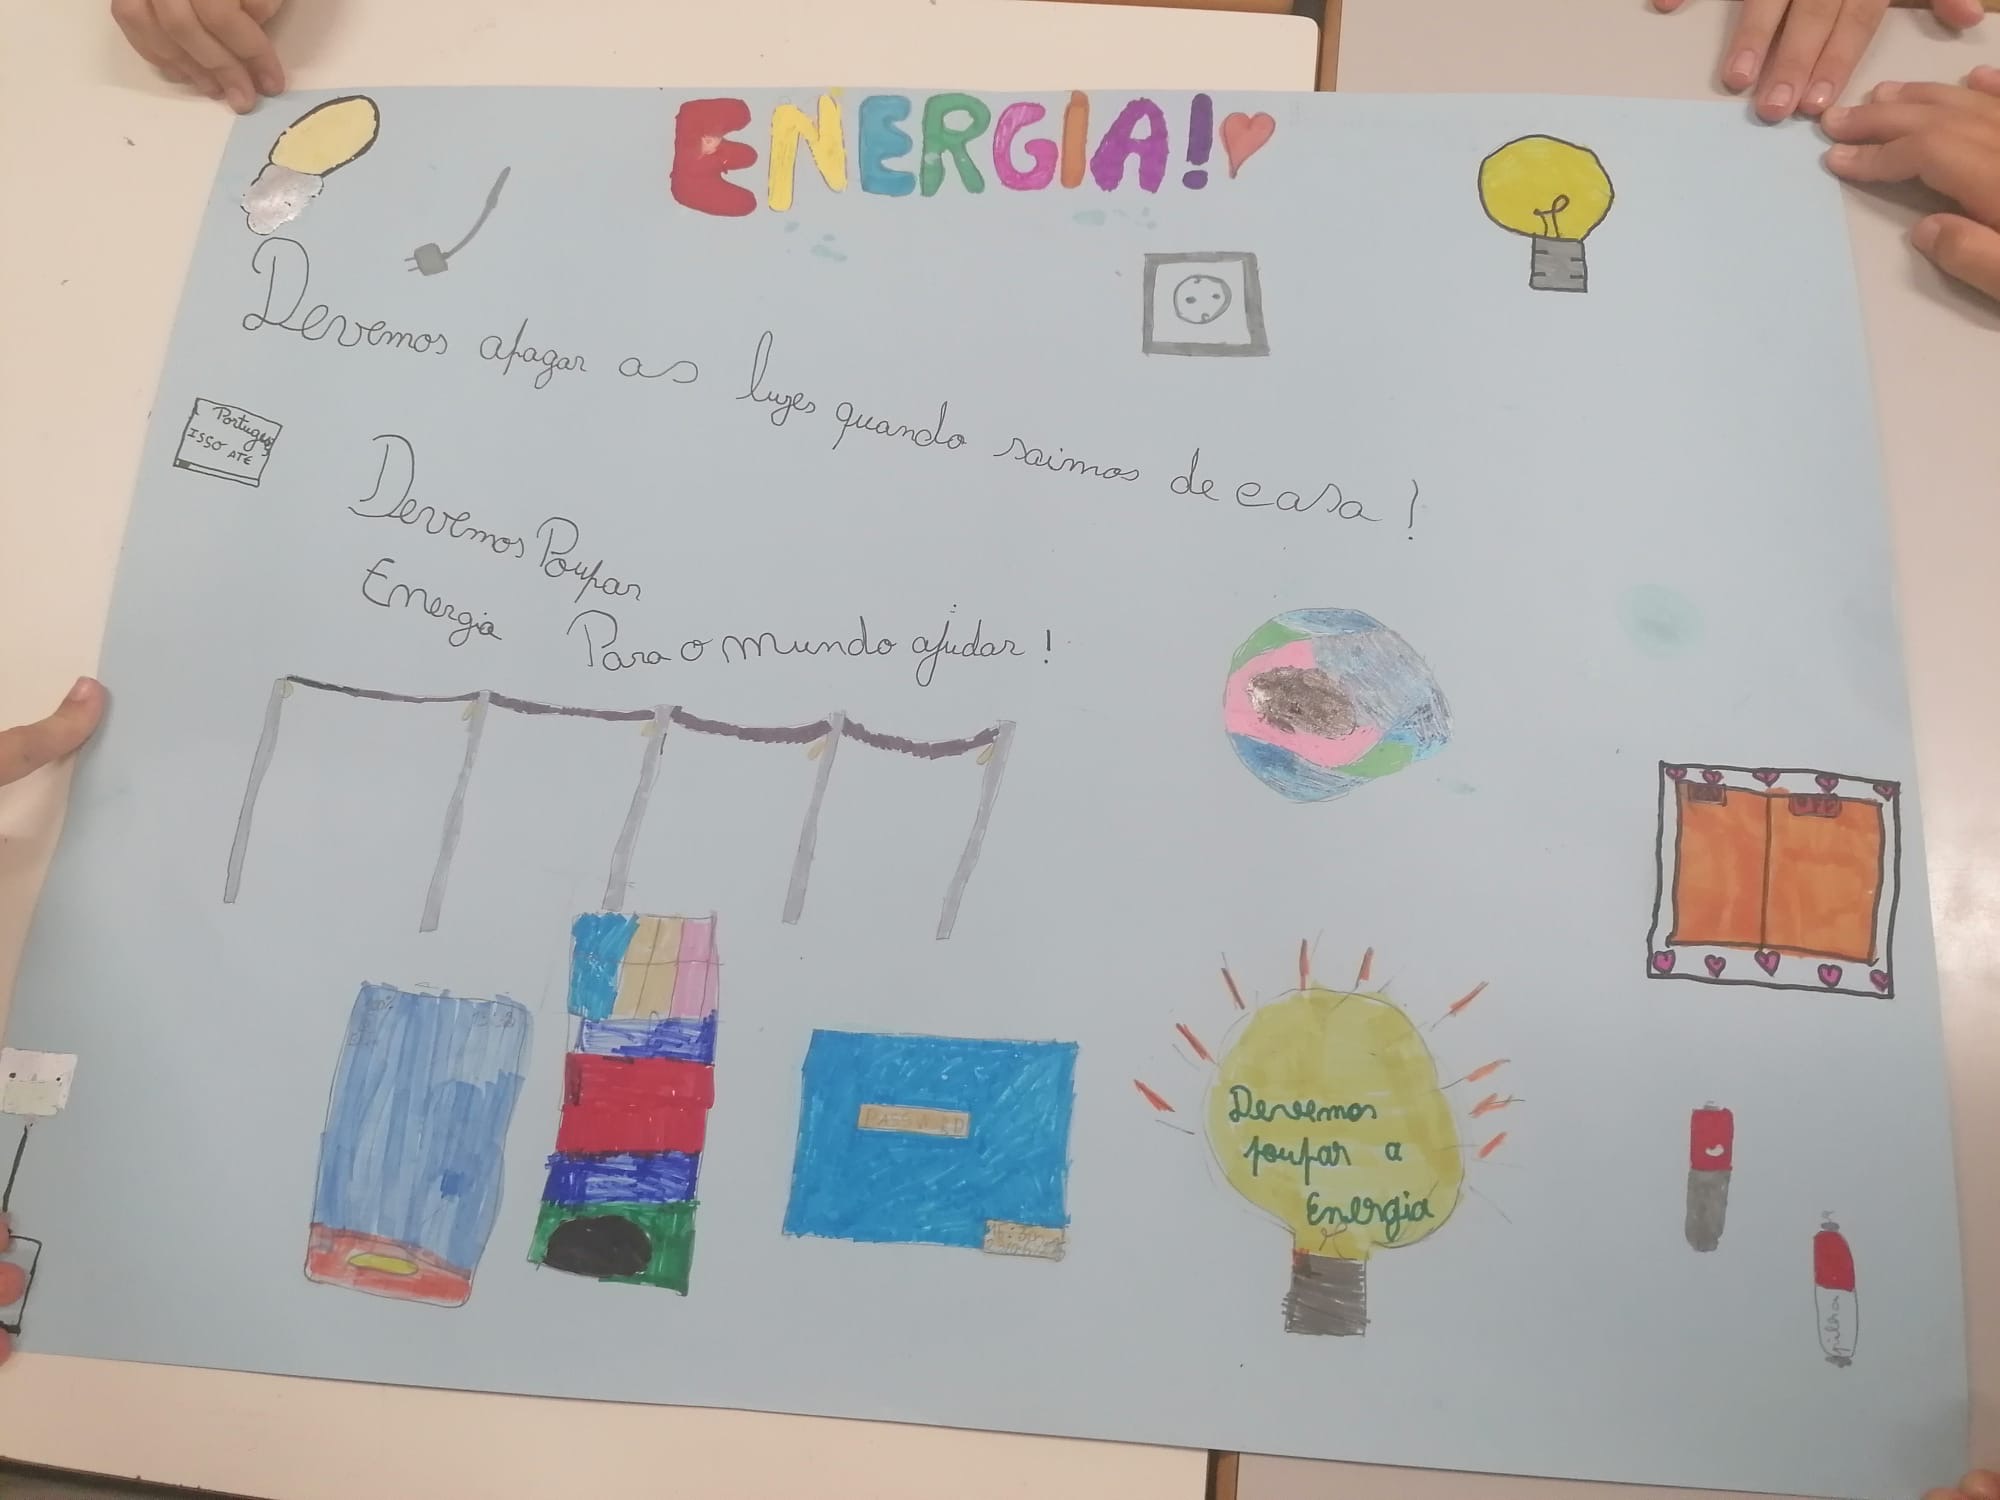 ENERGIA!
Devemos apagar as luzes quando saimos de casa!
Portugues
ISSO ATE
Devemos Poupar
Energia Para o mundo ajudar!
ON OFF
100%
PASSWORD
Devemos
poupar a
Energia
pilha